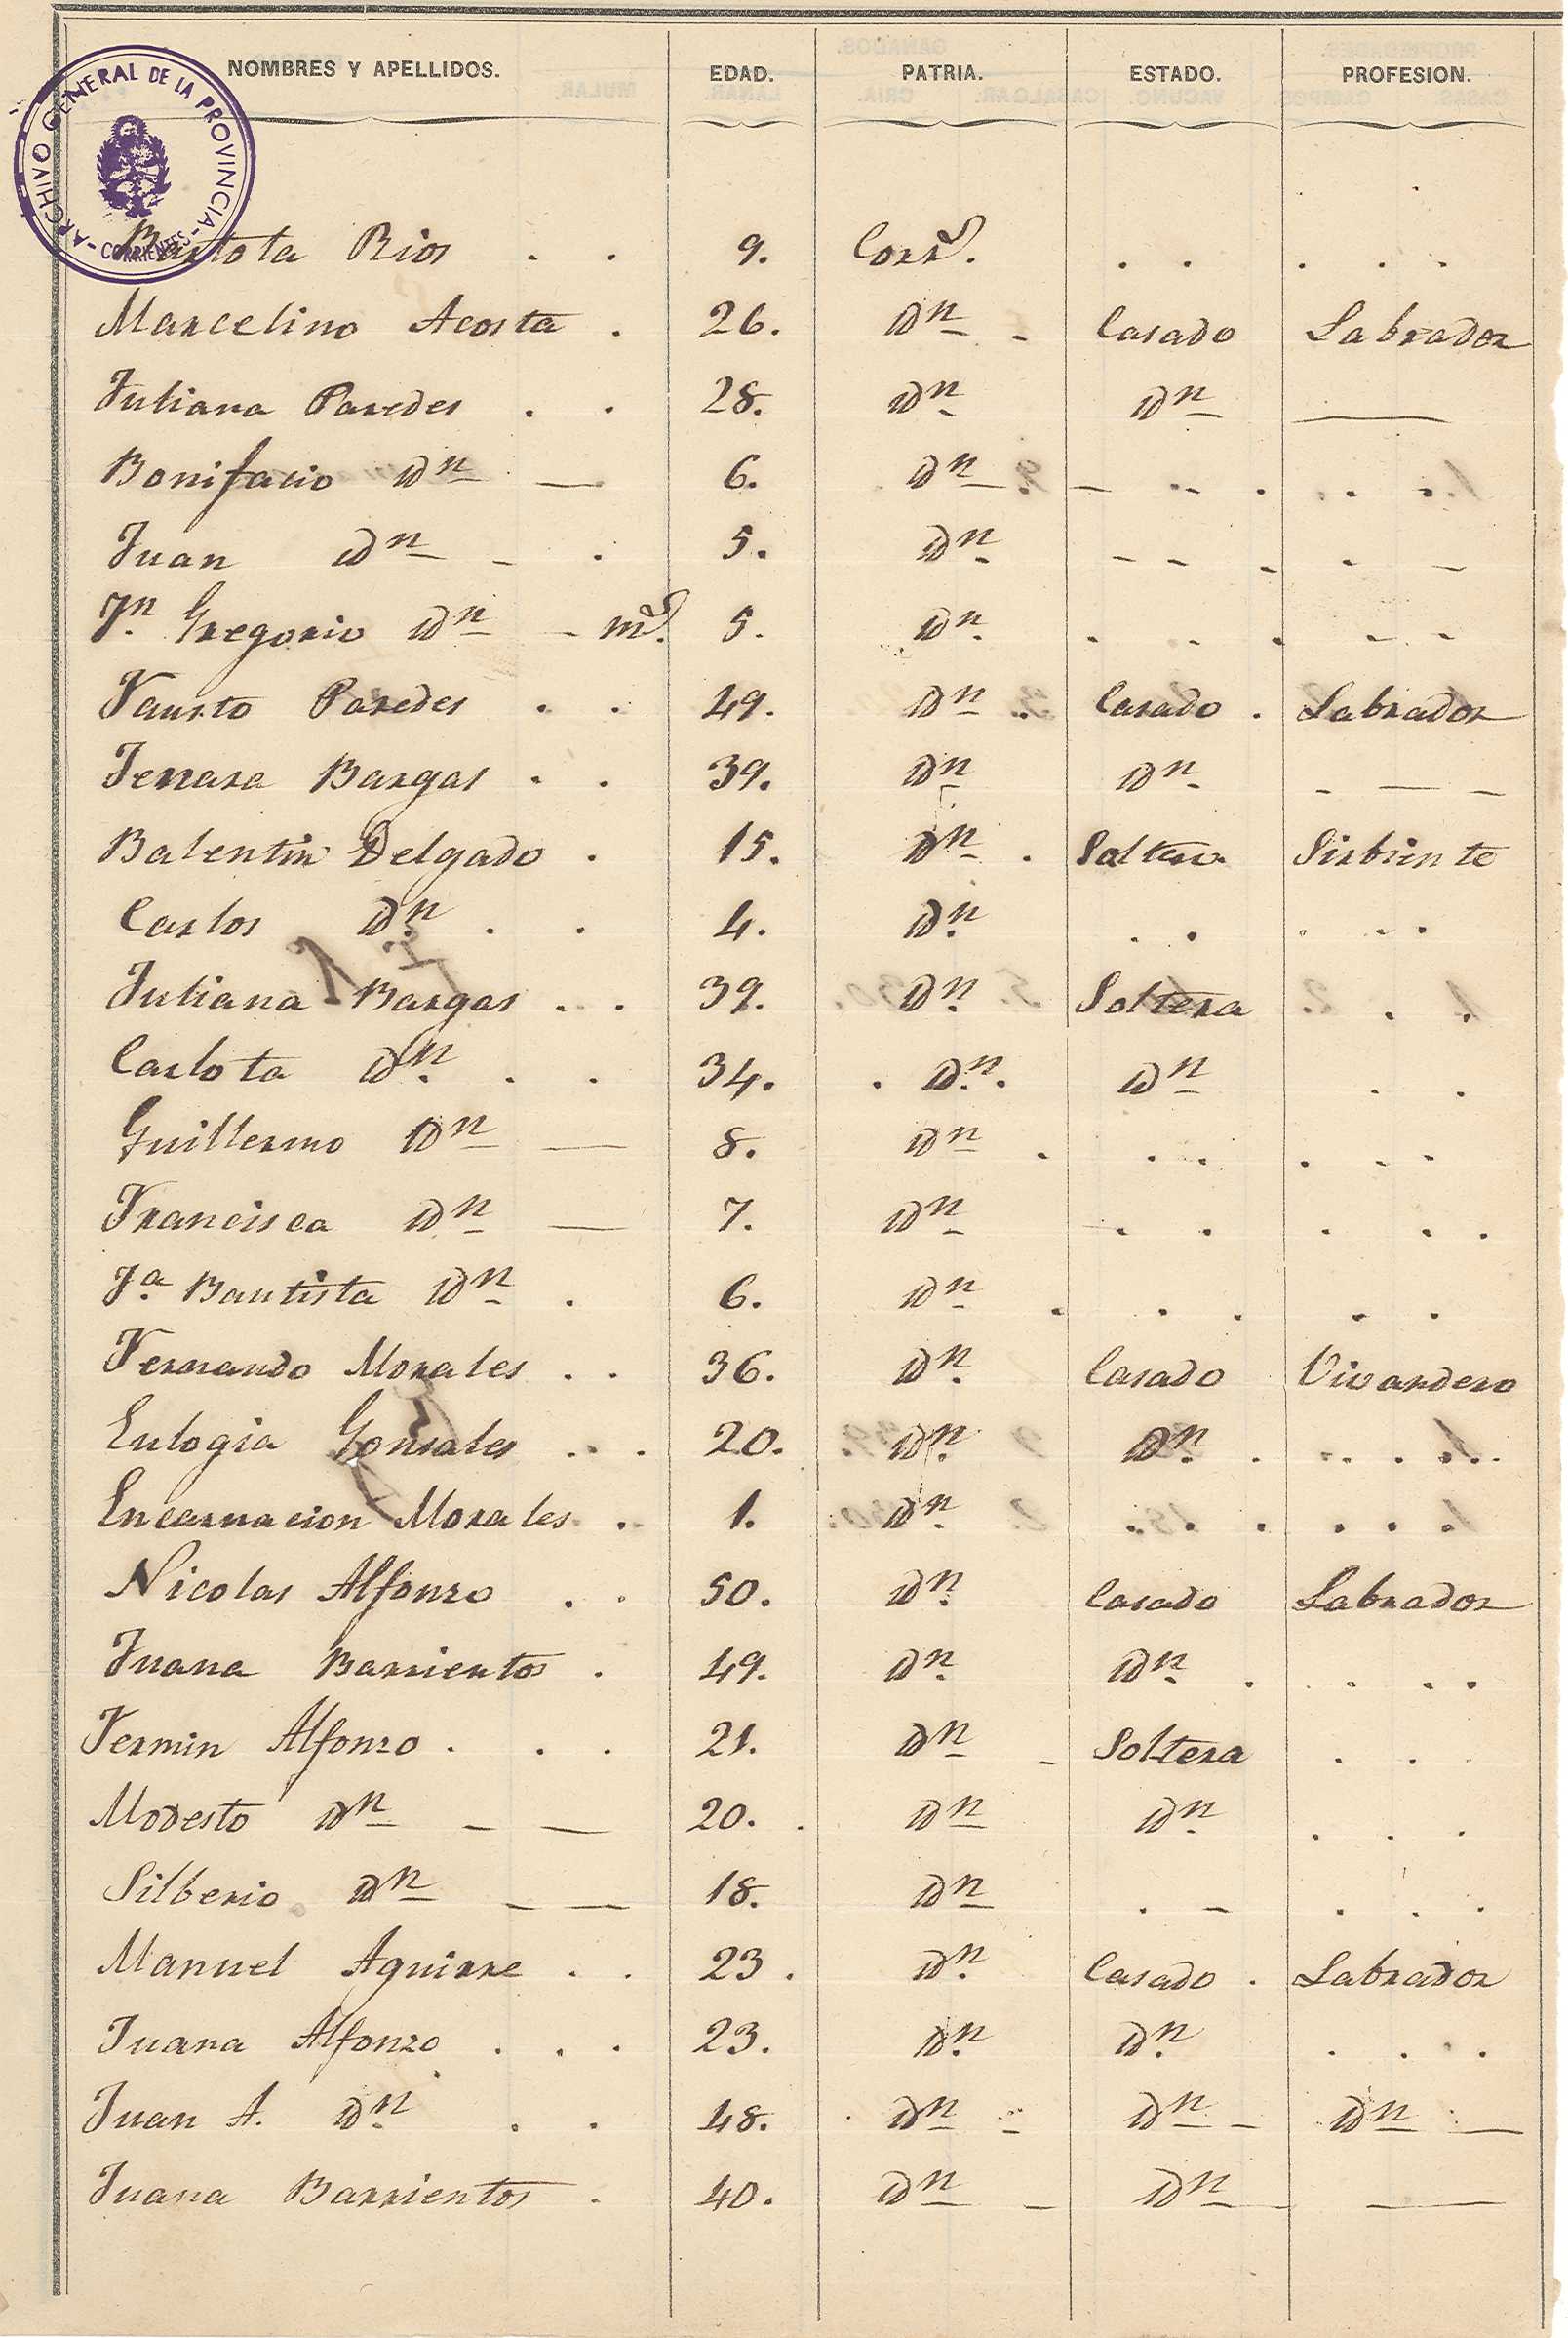 NOMBRES Y APELLIDOS. EDAD. PATRIA. ESTADO. PROFESION.
ARCHIVO GENERAL DE LA PROVINCIA - CORRIENTES -
Bartola Rios . . 9. Corrs. . . . . .
Marcelino Acosta . 26. Dn - Casado Labrador
Juliana Paredes . . 28. Dn Dn —
Bonifacio Dn — 6. Dn
Juan Dn - . 5. Dn
Jn. Gregorio Dn - ms. 5. Dn
Fausto Paredes . . 49. Dn Casado . Labrador
Jenara Bargas . . 39. Dn Dn. - — -
Balentin Delgado . 15. Dn . Soltero Sirbiente
Carlos Dn . . 4. Dn
Juliana Bargas . . 39. Dn Soltera . .
Carlota Dn. . . 34. . Dn. Dn . .
Guillermo Dn — 8. Dn
Francisca Dn — 7. Dn
Ja. Bautista Dn . 6. Dn
Fernando Morales . . 36. Dn. Casado Vivandero
Eulogia Gonsales . . . 20. Dn. Dn.
Encarnacion Morales . . 1. Dn.
Nicolas Alfonzo . . 50. Dn. Casado Labrador
Juana Barrientos . 49. Dn. Dn.
Fermin Alfonzo . . . 21. Dn - Soltera . .
Modesto Dn - — 20. . Dn Dn. . . .
Silberio Dn — — 18. Dn . - . . .
Manuel Aguirre . . 23 . Dn. Casado . Labrador
Juana Alfonzo . . . 23. Dn. Dn. . . . .
Juan A. Dn. . . 48. Dn - Dn - Dn —
Juana Barrientos . 40. Dn - Dn —